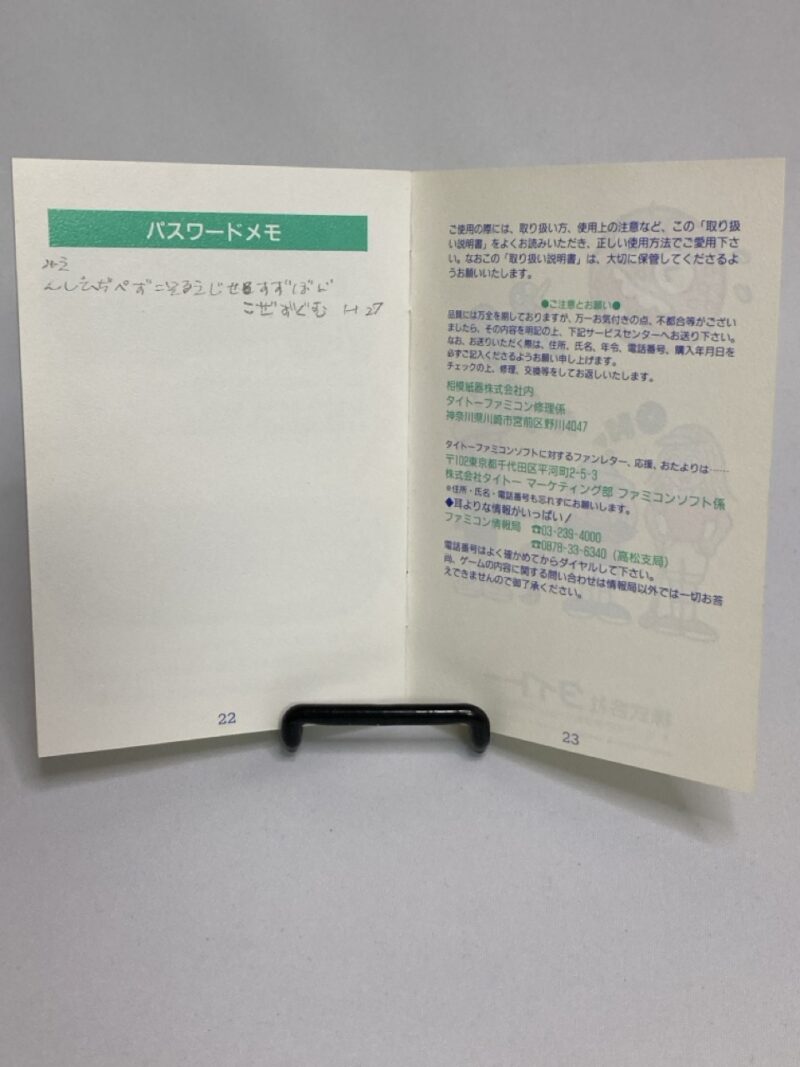 パスワードメモ
こぜずぐむ H 27
22
ご使用の際には、取り扱い方、使用上の注意など、この「取り扱
い説明書」をよくお読みいただき、正しい使用方法でご愛用下さ
い。なおこの「取り扱い説明書」は、大切に保管してくださるよ
うお願いいたします。
●ご注意とお願い●
品質には万全を期しておりますが、万一お気付きの点、不都合等がござい
ましたら、その内容を明記の上、下記サービスセンターへお送り下さい。
なお、お送りいただく際は、住所、氏名、年令、電話番号、購入年月日を
必ずご記入くださるようお願い申し上げます。
チェックの上、修理、交換等をしてお返しいたします。
相模紙器株式会社内
タイトーファミコン修理係
神奈川県川崎市宮前区野川4047
タイトーファミコンソフトに対するファンレター、応援、おたよりは……
〒102東京都千代田区平河町2-5-3
株式会社タイトー マーケティング部 ファミコンソフト係
※住所・氏名・電話番号も忘れずにお願いします。
◆耳よりな情報がいっぱい!
ファミコン情報局 ☎03-239-4000
☎0878-33-6340(高松支局)
電話番号はよく確かめてからダイヤルして下さい。
尚、ゲームの内容に関する問い合わせは情報局以外では一切お答
えできませんので御了承ください。
23